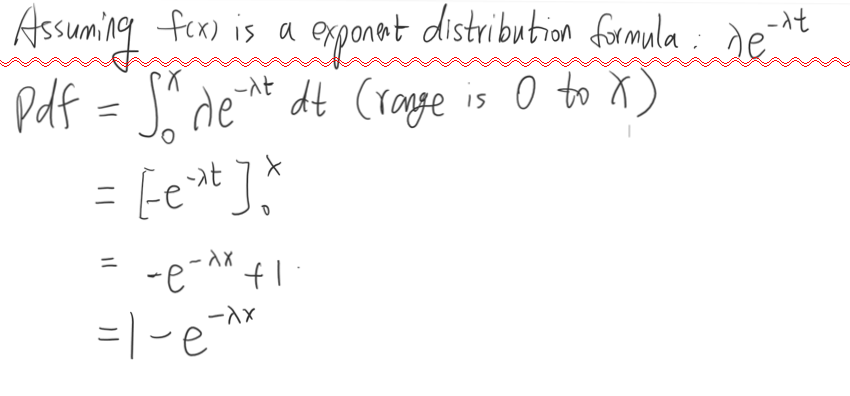 Assuming f(x) is a exponent distribution formula : λe^{-λt}
Pdf = ∫_0^x λe^{-λt} dt (range is 0 to X)
= [-e^{-λt}]_0^x
= -e^{-λx} +1
=1-e^{-λx}